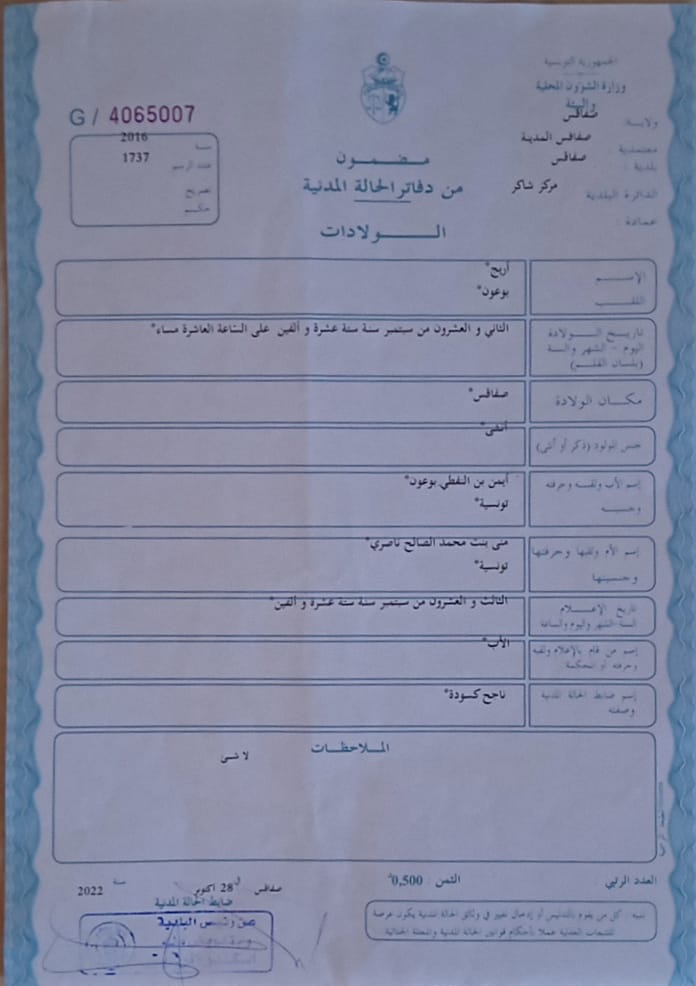 الجمهورية التونسية
وزارة الشؤون المحلية
والبيئة
ولاية: صفاقس
معتمدية : صفاقس المدينة
بلدية : صفاقس
الدائرة البلدية مركز شاكر
عمادة :
G / 4065007
سنة 2016
عدد الرسم 1737
تصريح
حكم
مضمون
من دفاتر الحالة المدنية
الولادات
الإسم أريج*
اللقب بوعون*
تاريخ الولادة
اليوم - الشهر والسنة
(بلسان القلم)
الثاني و العشرون من سبتمبر سنة ستة عشرة و ألفين على الساعة العاشرة مساء*
مكان الولادة صفاقس*
جنس المولود (ذكر أو أنثى) أنثى*
إسم الأب ولقبه وحرفته أيمن بن النفطي بوعون*
وجنسيته تونسية*
إسم الأم ولقبها وحرفتها منى بنت محمد الصالح ناصري*
وجنسيتها تونسية*
تاريخ الإعلام
السنة-الشهر واليوم والساعة
الثالث و العشرون من سبتمبر سنة ستة عشرة و ألفين*
إسم من قام بالإعلام ولقبه
وحرفته أو المحكمة
الأب*
إسم ضابط الحالة المدنية
وصفته
ناجح كسودة*
الملاحظات
لا شئ
العدد الرتبي
الثمن : 0,500د
صفاقس في 28 أكتوبر سنة 2022
ضابط الحالة المدنية
عن رئيس البلدية
تنبيه : كل من يقوم بالتدليس أو إدخال تغيير في وثائق الحالة المدنية يكون عرضة
للتتبعات العدلية عملا بأحكام قوانين الحالة المدنية والمجلة الجنائية